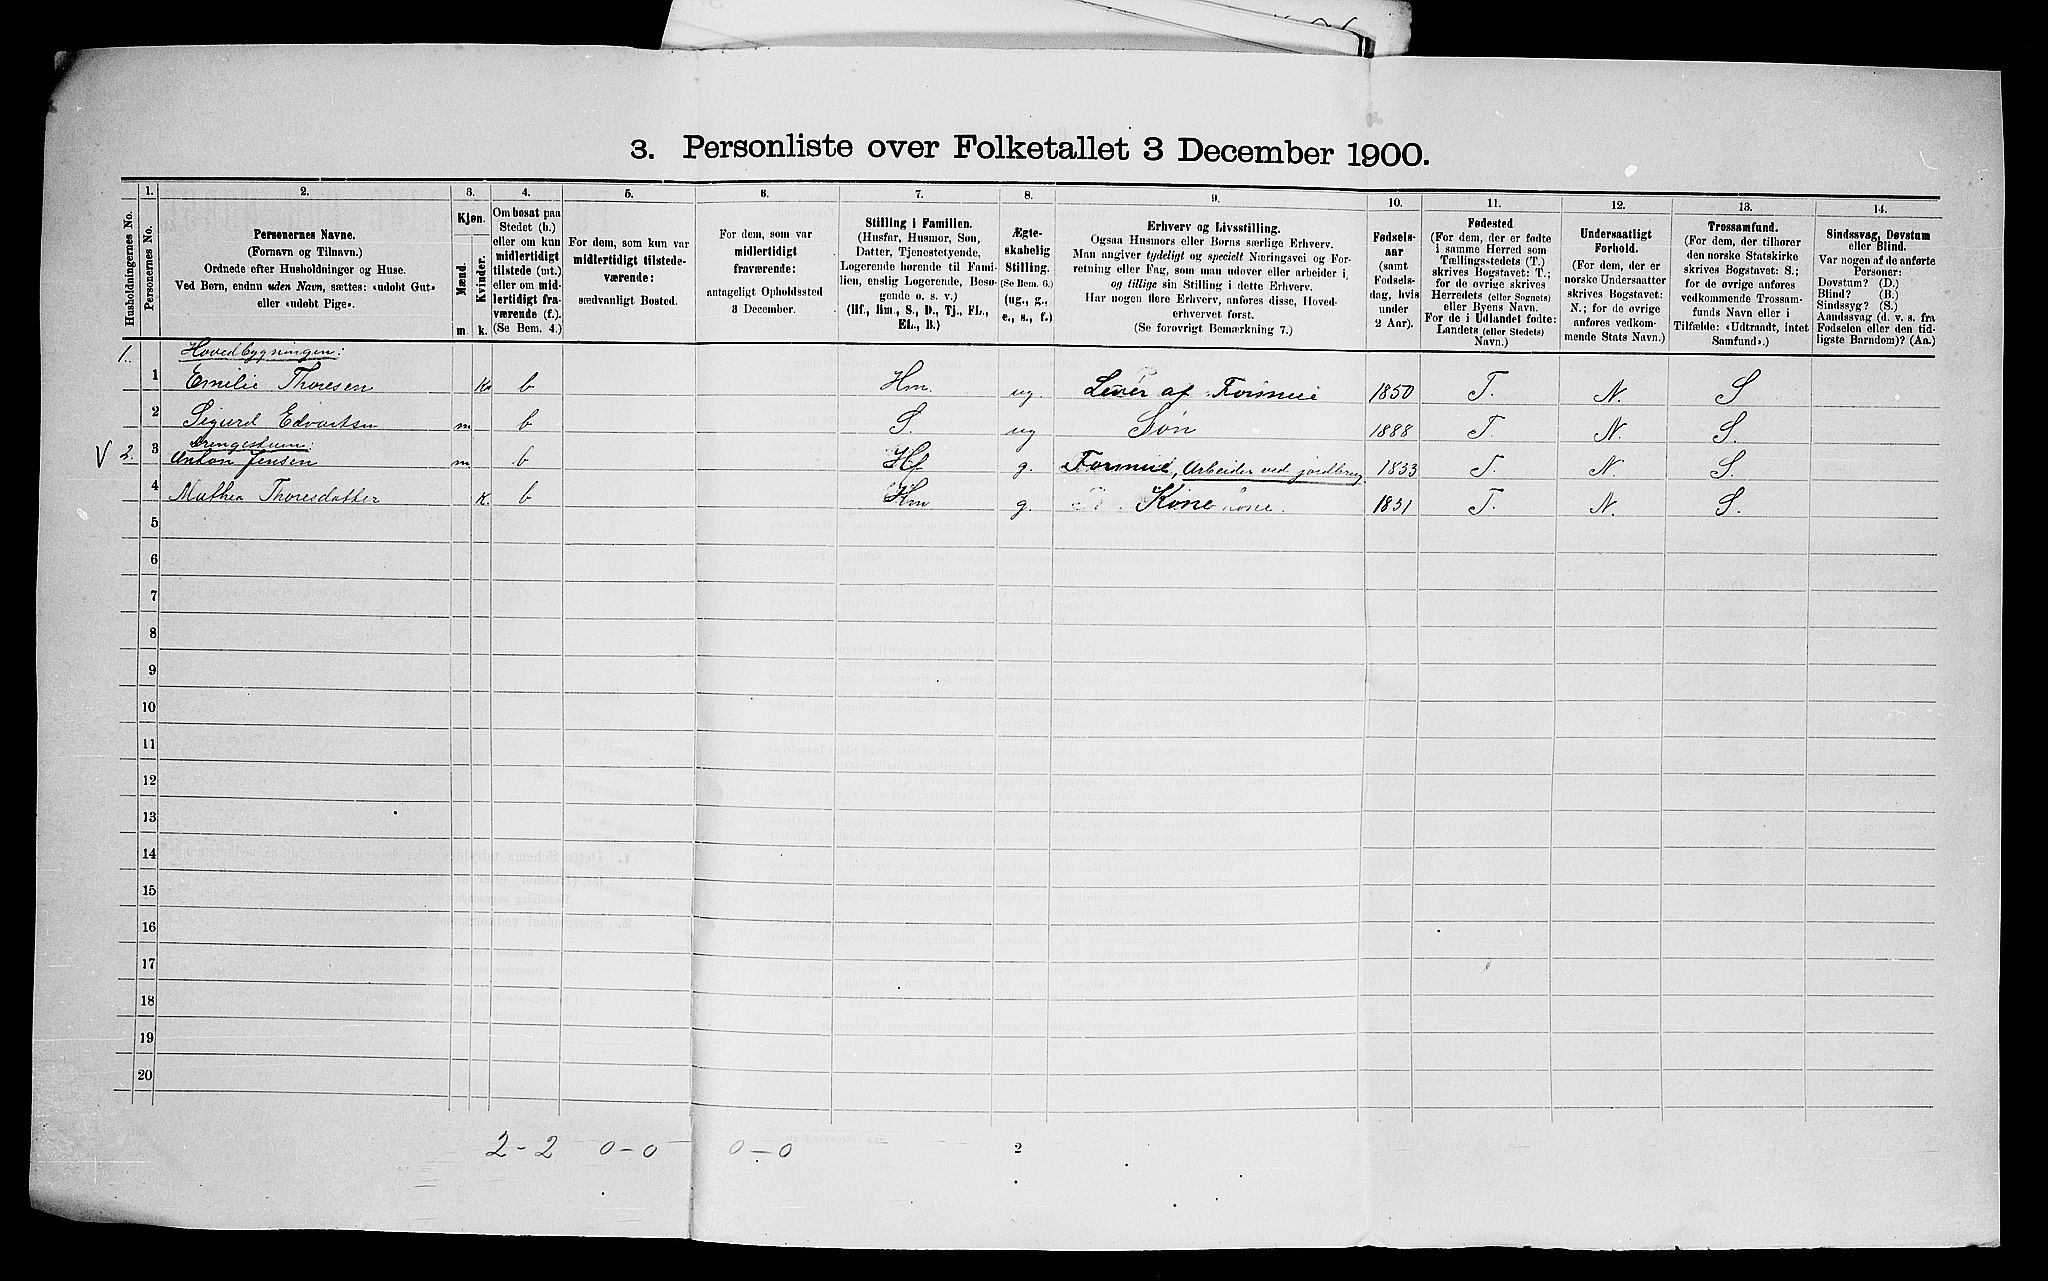 3. Personliste over Folketallet 3 December 1900.
Husholdningernes No.
1.
Personernes No.
2.
Personernes Navne.
(Fornavn og Tilnavn.)
Ordnede efter Husholdninger og Huse.
Ved Børn, endnu uden Navn, sættes: «udøbt Gut»
eller «udøbt Pige».
3.
Kjøn.
Mænd.
Kvinder.
m.
k.
4.
Om bosat paa
Stedet (b.)
eller om kun
midlertidigt
tilstede (mt.)
eller om mid-
lertidigt fra-
værende (f.).
(Se Bem. 4.)
5.
For dem, som kun var
midlertidigt tilstede-
værende:
sædvanligt Bosted.
6.
For dem, som var
midlertidigt
fraværende:
antageligt Opholdssted
3 December.
7.
Stilling i Familien.
(Husfar, Husmor, Søn,
Datter, Tjenestetyende,
Logerende hørende til Fami-
lien, enslig Logerende, Besø-
gende o. s. v.)
(Hf., Hm., S., D., Tj., FL.,
EL., B.)
8.
Ægte-
skabelig
Stilling.
(Se Bem. 6.)
(ug., g.,
e., s., f.)
9.
Erhverv og Livsstilling.
Ogsaa Husmors eller Børns særlige Erhverv.
Man angiver tydeligt og specielt Næringsvei og For-
retning eller Fag, som man udøver eller arbeider i,
og tillige sin Stilling i dette Erhverv.
Har nogen flere Erhverv, anføres disse, Hoved-
erhvervet først.
(Se forøvrigt Bemærkning 7.)
10.
Fødsels-
aar
(samt
Fødsels-
dag, hvis
under
2 Aar).
11.
Fødested
(For dem, der er fødte
i samme Herred som
Tællingsstedets (T.)
skrives Bogstavet: T.;
for de øvrige skrives
Herredets (eller Sognets)
eller Byens Navn.
For de i Udlandet fødte:
Landets (eller Stedets)
Navn.)
12.
Undersaatligt
Forhold.
(For dem, der er
norske Undersaatter
skrives Bogstavet:
N.; for de øvrige
anføres vedkom-
mende Stats Navn.)
13.
Trossamfund.
(For dem, der tilhører
den norske Statskirke
skrives Bogstavet: S.;
for de øvrige anføres
vedkommende Trossam-
funds Navn eller i
Tilfælde: «Udtraadt, intet
Samfund».)
14.
Sindssvag, Døvstum
eller Blind.
Var nogen af de anførte
Personer:
Døvstum? (D.)
Blind? (B.)
Sindssyg? (S.)
Aandssvag (d. v. s. fra
Fødselen eller den tid-
ligste Barndom)? (Aa.)
1. Hovedbygningen:
1 Emilie Thoresen K b Hm. ug. Lever af Formue 1850 T. N. S
2 Sigurd Edvartsen m b S. ug Søn 1888 T. N. S.
V 2. Drengestuen:
3 Anton Jensen m b Hf g. Formue, Arbeider ved jordbrug 1833 T. N. S.
4 Mathea Thoresdatter K. b Hm g. Kone 1831 T. N. S.
5
6
7
8
9
10
11
12
13
14
15
16
17
18
19
20
2-2 0-0 0-0
2